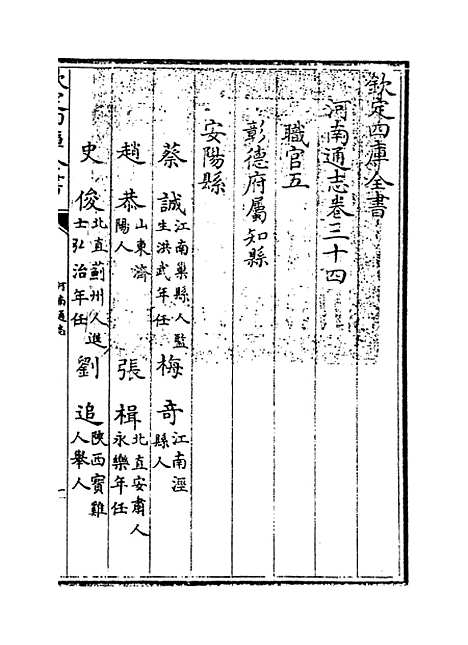 欽定四庫全書
河南通志卷三十四
職官五
彰德府屬知縣
安陽縣
蔡誠江南巢縣人監生洪武年任 梅奇江南涇縣人
趙恭山東濟陽人 張楫北直安肅人永樂年任
史俊北直薊州人進士弘治年任 劉追陝西寶雞人舉人
欽定四庫全書
河南通志
一